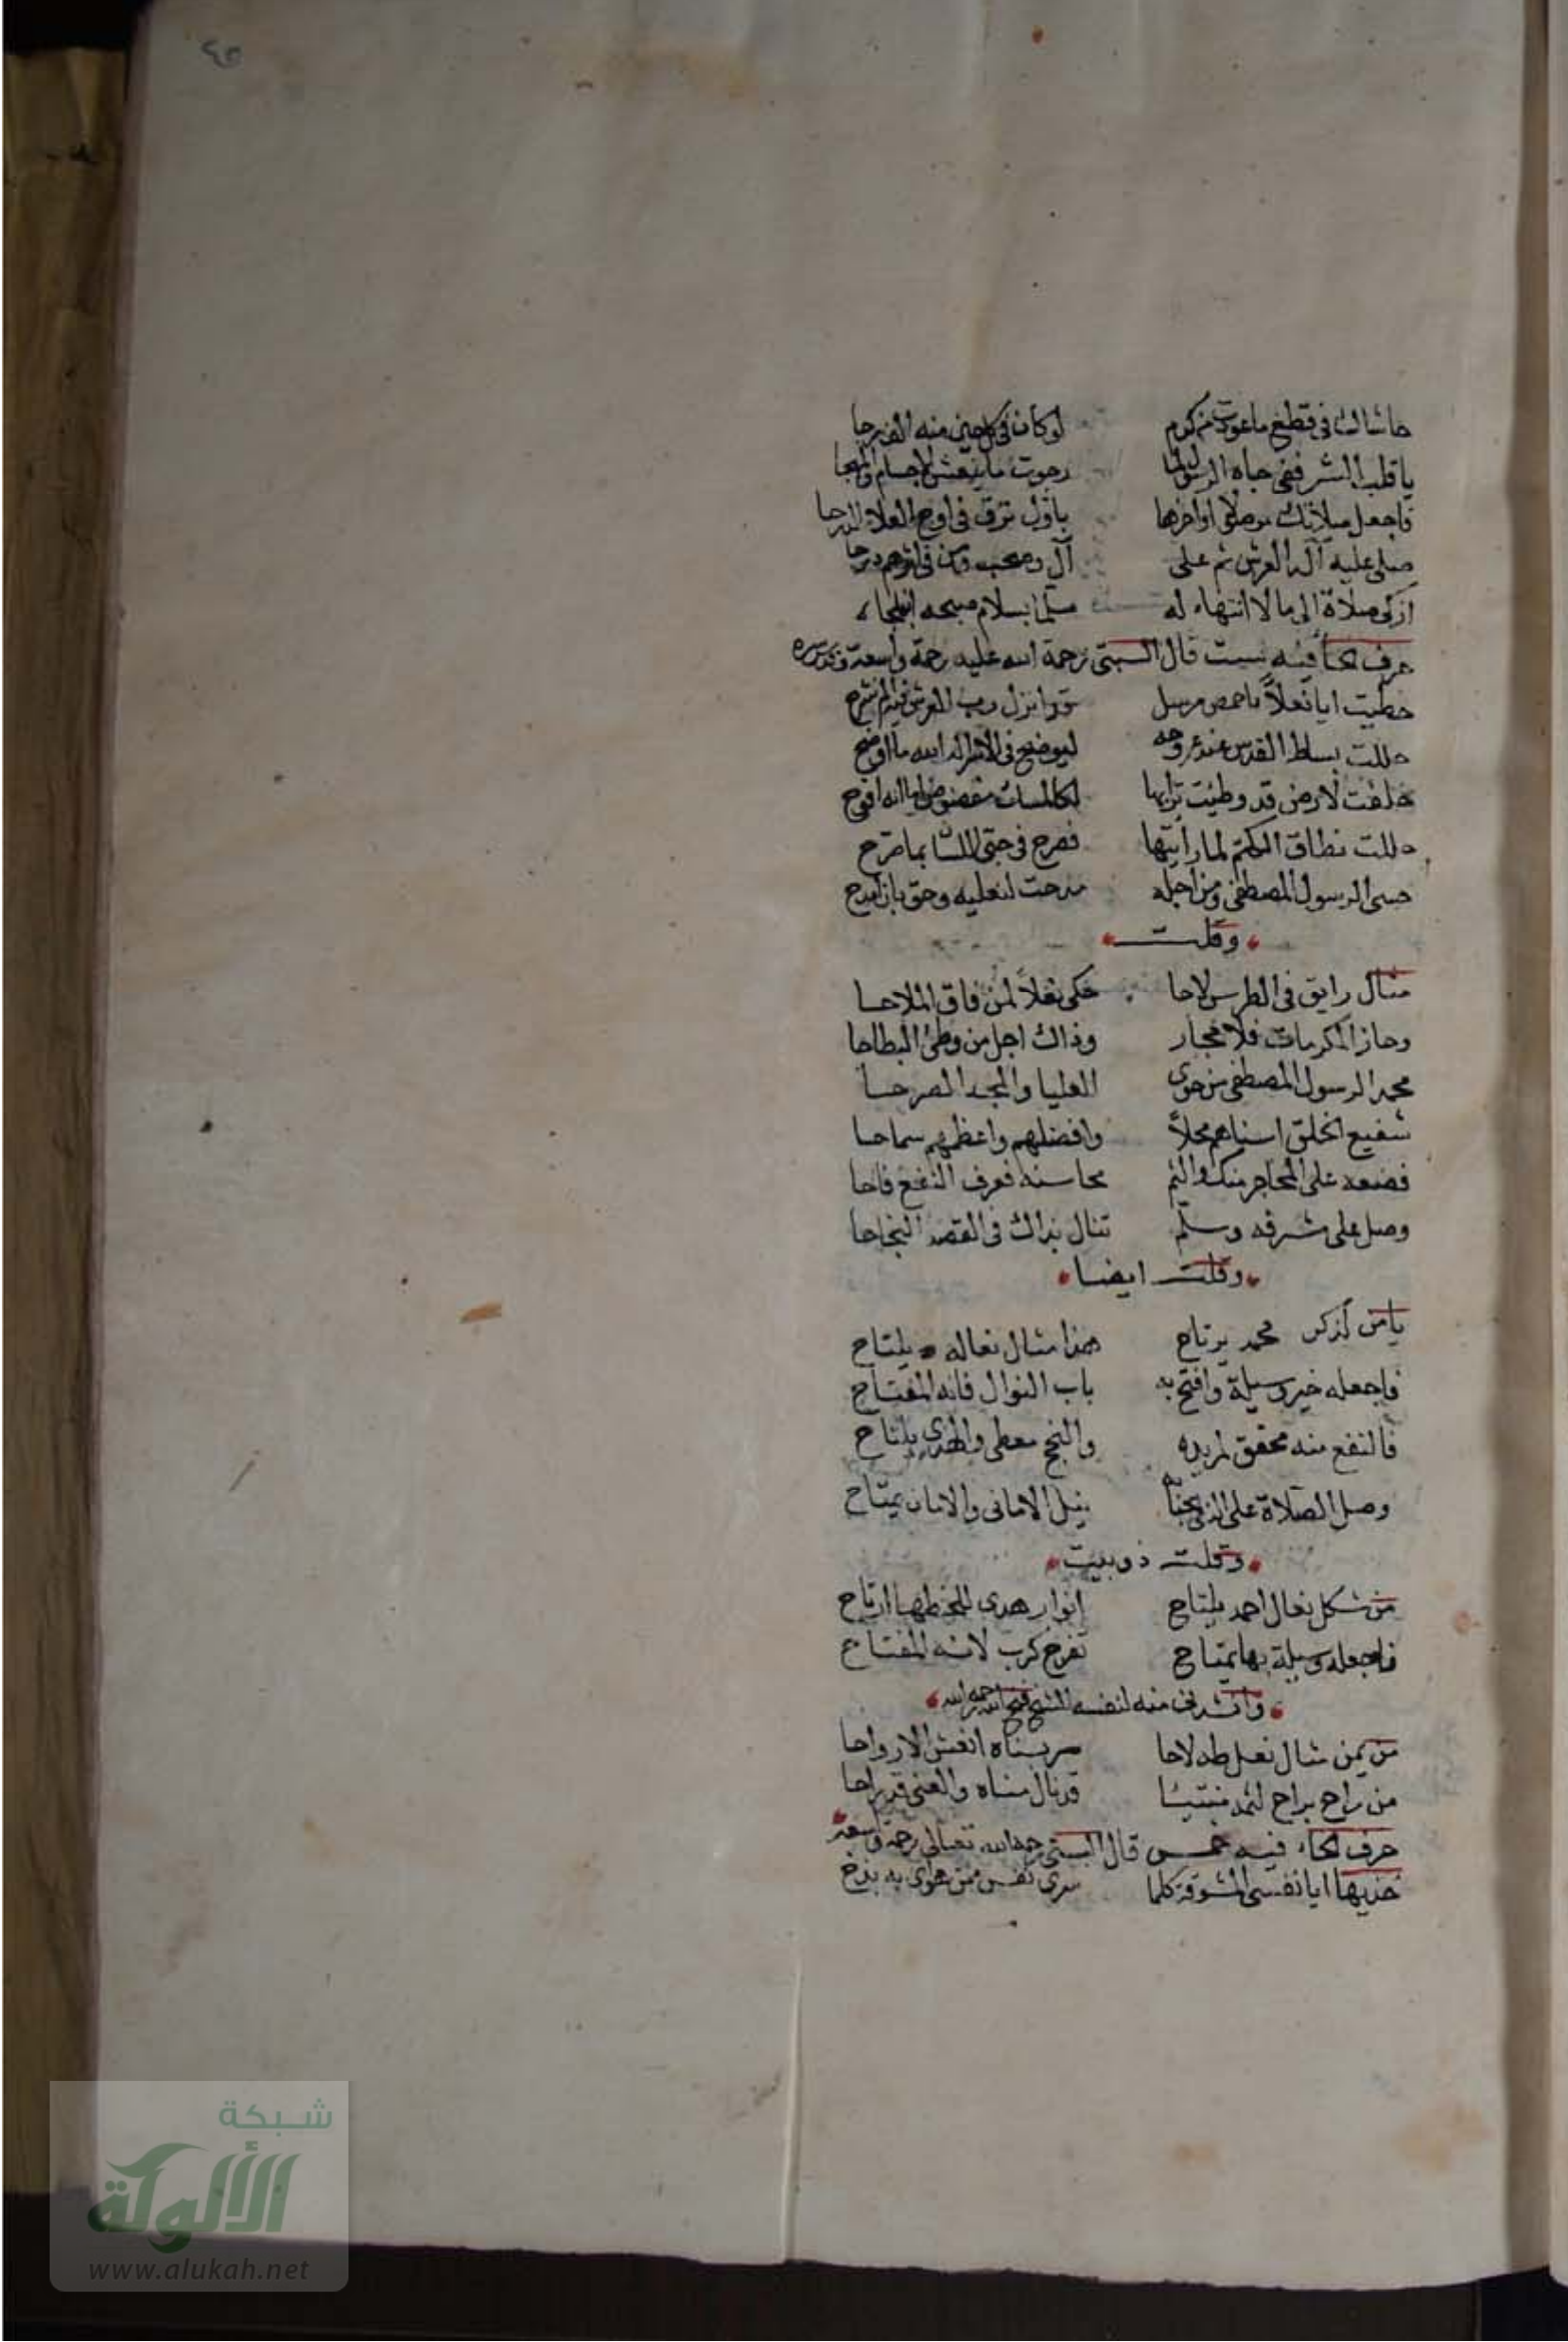 ٤٥
حاشاك في قطع ما عودت من كرم لو كان في كل حين منه الف رجا
يا قلب ابشر ففي جاه الرسول لما رجوت ما ينعش الاجسام والمهجا
فاجعل صلاتك موصلا اواخرها باول ترق في اوج العلا الدرجا
صلى عليه آله العرش ثم على آل وصحب ومن في اثرهم درجا
ازكى صلاة الى ما لا انتهاء له مسلما بسلام صبحه ابتلجا
حرف الحا فيه ست قال السبتي رحمة الله عليه رحمة واسعة
خطيت ايا نعلا باخمص مرسل وانزل رب العرش فيه الم نشرح
حللت بساط القدس عند عروجه ليوضح في الاسرا له الله ما اوضح
خلفت لارض قد وطئت ترابها لكالمسك
حللت نطاق الكتم لما رايتها فصرح في حبي للشا بما صرح
حبي الرسول المصطفى ومن اجله مدحت لنعليه وحق بان امدح
وقلت
مثال رايق في الطرس لاحا حكى نعلا لمن فاق الملاحا
وحاز المكرمات فلا مجار وذاك اجل من وطئ البطاحا
محمد الرسول المصطفى من حوى العليا والمجد الصرحا
شفيع الخلق اسناهم محلا وافضلهم واعظمهم سماحا
فضعه على المحاجر منك والثم محاسنه فعرف النفع فاحا
وصل على مشرفه وسلم تنال بذاك في القصد النجاحا
وقلت ايضا
يا من لذكر محمد يرتاح هذا مثال نعاله يلتاح
فاجعله خير وسيلة وافتح به باب النوال فانه المفتاح
فالنفع منه محقق لمريده والنجح معطى والهدى يلتاح
وصل الصلاة على الذي بجنابه نيل الاماني والامان يمتاح
وقلت ذوبيت
من شكل نعال احمد يلتاح انوار هدى للحظها ارتاح
فاجعله وسيلة بها يمتاح تفرج كرب لانه المفتاح
وانشدني منه لنفسه الشيخ فتح الله رحمه الله
من يمن مثال نعل طه لاحا سر بسناه انعش الارواحا
من راح براح لثمه منتشيا قد نال مناه والعنى قد راحا
حرف الخاء فيه خمس قال السبتي رحمه الله تعالى رحمة واسعة
خذيها ايا نفسي المشوقة كلما سرى نفس ممن هواى به بذخ
شبكة
الألوكة
www.alukah.net